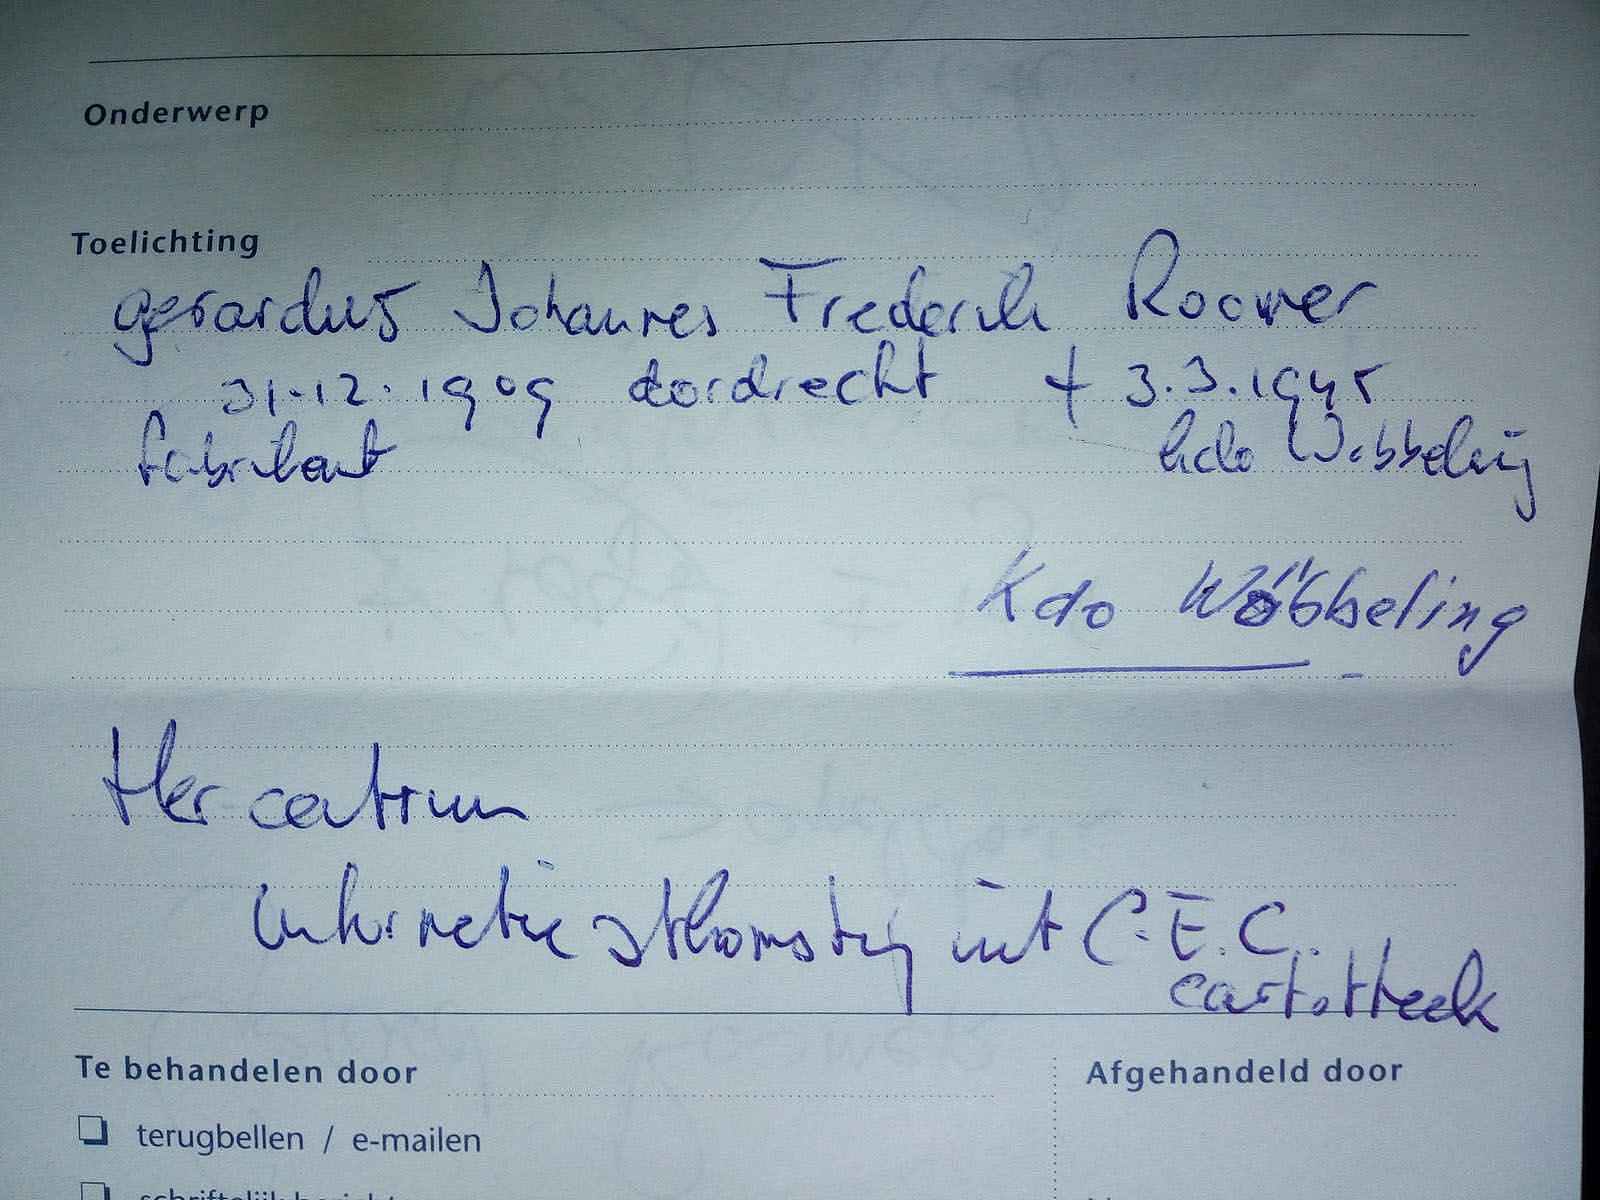 Onderwerp
Toelichting
gerardus Johannes Frederik Roomer
31-12-1909 dordrecht † 3.3.1945
fabrikant Kdo Wobbeling
Kdo Wöbbeling
centrum
informatie afkomstig uit C.E.C.
cartotheek
Te behandelen door
Afgehandeld door
terugbellen / e-mailen